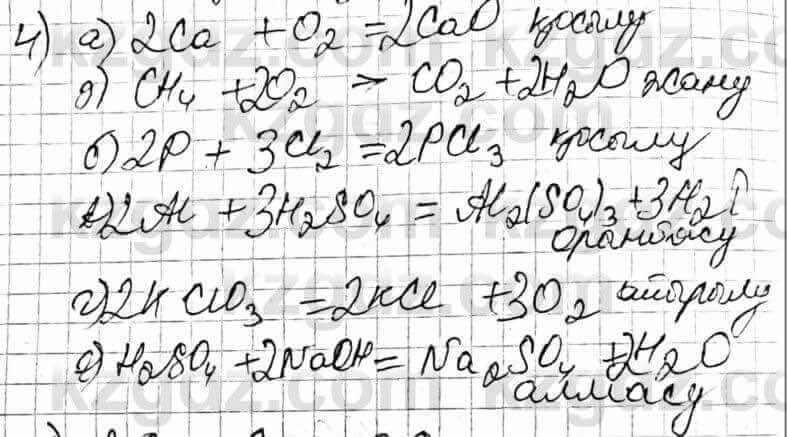 4) а) 2Ca + O₂ = 2CaO қосылу
ә) CH₄ + 2O₂ → CO₂ + 2H₂O жану
б) 2P + 3Cl₂ = 2PCl₃ қосылу
в) 2Al + 3H₂SO₄ = Al₂(SO₄)₃ + 3H₂↑
орынбасу
г) 2KClO₃ = 2KCl + 3O₂ айырылу
д) H₂SO₄ + 2NaOH = Na₂SO₄ + 2H₂O
алмасу